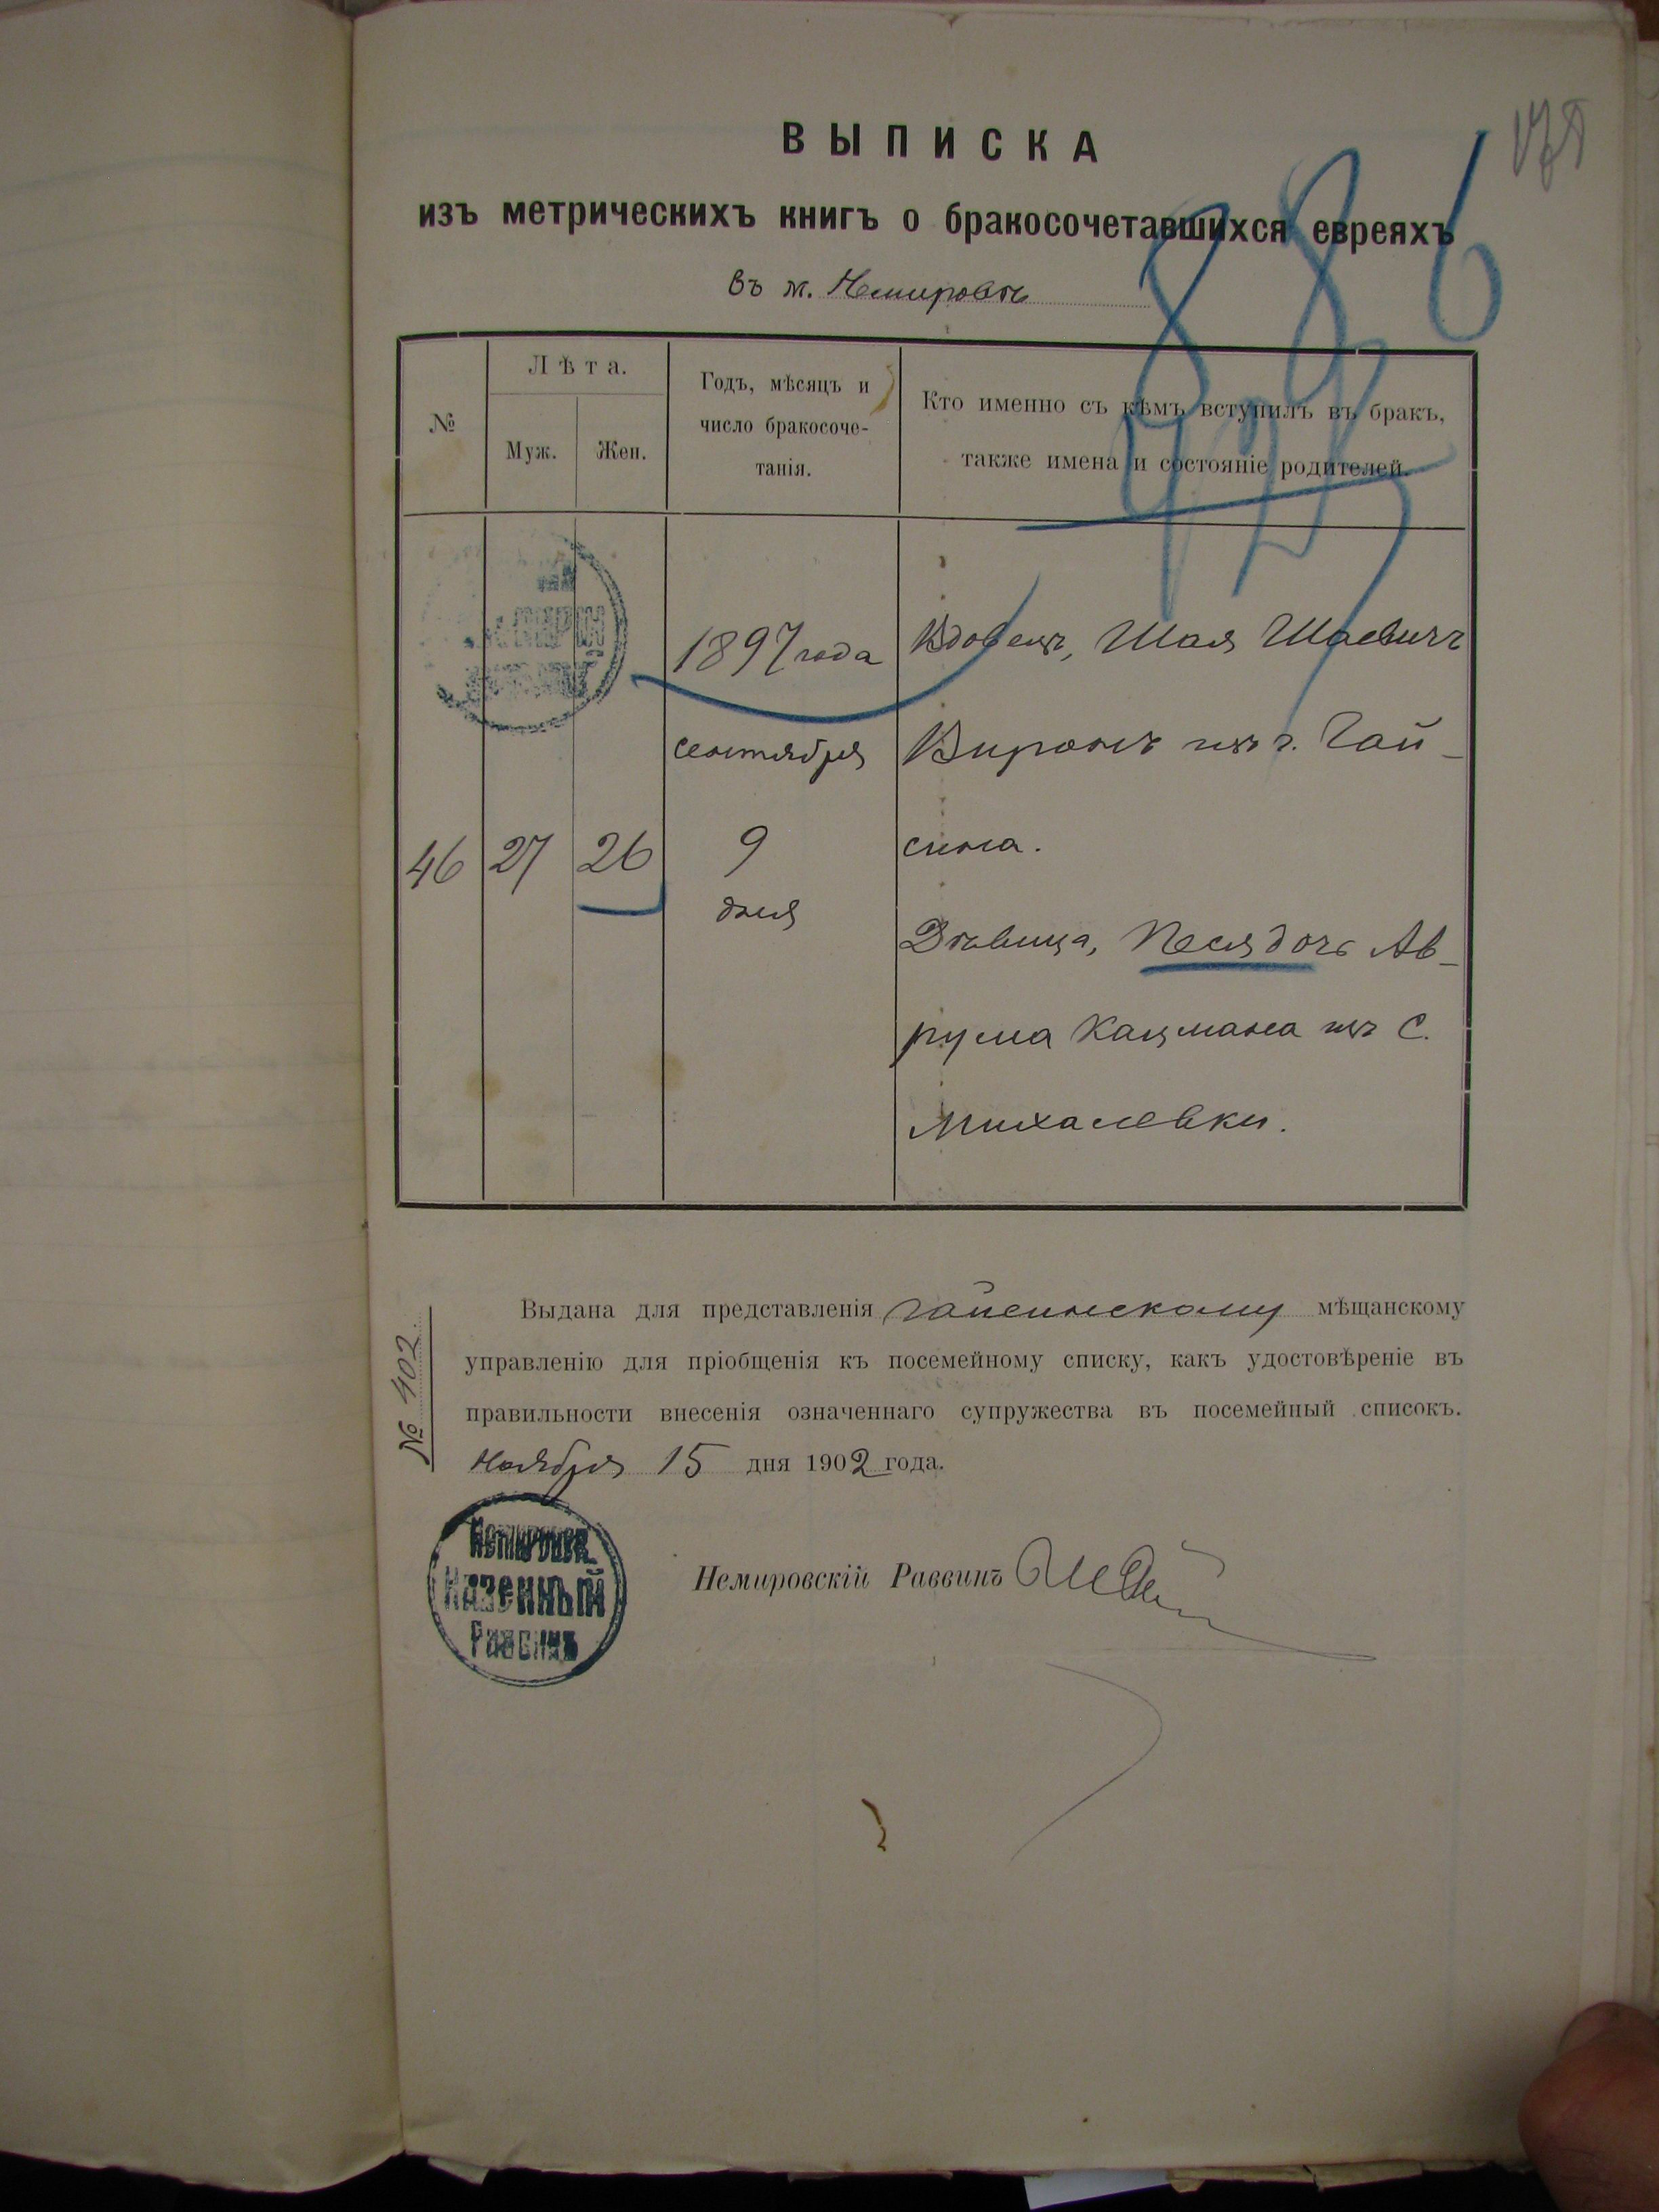 ВЫПИСКА
изъ метрическихъ книгъ о бракосочетавшихся евреяхъ
въ м. Немировѣ
886
№
Лѣта.
Муж.
Жен.
Годъ, мѣсяцъ и
число бракосоче-
танія.
Кто именно съ кѣмъ вступилъ въ бракъ,
также имена и состояніе родителей.
46
27
26
1897 года
сентября
9
дня
Вдовецъ, Шая Шаевичъ
изъ г. Гай-
сина.
Дѣвица, Песя дочь Ав-
рума Кацмана изъ С.
Михалевки.
№ 402
Выдана для представленія Гайсинскому мѣщанскому
управленію для пріобщенія къ посемейному списку, какъ удостовѣреніе въ
правильности внесенія означеннаго супружества въ посемейный списокъ.
Ноября 15 дня 1902 года.
Казенный
Раввинъ
Немировскій Раввинъ